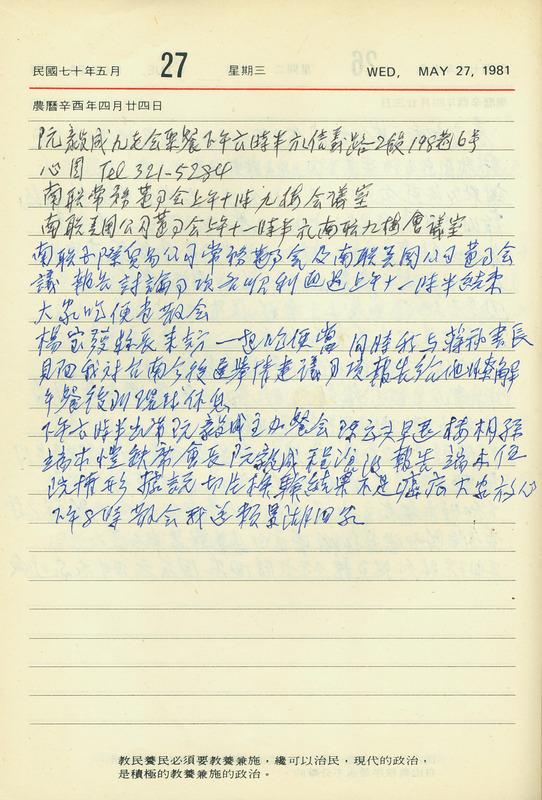 民國七十年五月 27 星期三 WED, MAY 27, 1981
農曆辛酉年四月廿四日
阮毅成九老会聚餐下午六時半在信義路2段198巷6号
心園 Tel 321-5284
南联常務董事会上午十時九樓会議室
南联美国公司董事会上午十一時半南联九樓會議室
南联国際貿易公司常務董事会及南联美国公司董事会
議 報告討論事項各順利通過上午十一時半結束
大家吃便當散会
楊宝發縣長來訪 一起吃便當 同時我与蔣秘書長
見面我对台南今後選舉情建議事項報告給他瞭解
午餐後則返球休息
下午六時半出席阮毅成主办餐会 陳 早起 楼桐孫
端木愷 會長 阮毅成程滄波報告端木住
院情形 據說切片檢驗結果不是癌症大家放心
下午8時散会我送賴景瑚回家
教民養民必須要教養兼施，纔可以治民，現代的政治，
是積極的教養兼施的政治。